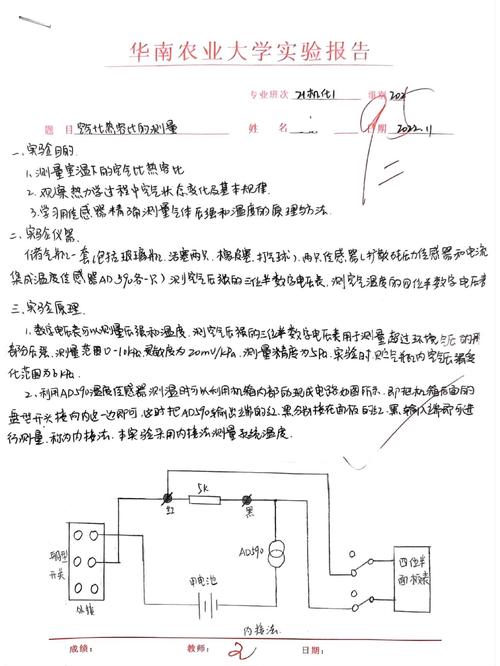 华南农业大学实验报告
专业班次 21机化1 组别 202
题目 空气比热容比的测量 姓名 日期 2022.11
95
一.实验目的.
1.测量室温下的空气比热容比
2.观察热力学过程中空气状态变化及基本规律.
3.学习用传感器精确测量气体压强和温度的原理与方法.
二.实验仪器.
储气瓶一套(包括玻璃瓶、活塞两只、橡皮塞、打气球).两只传感器(扩散硅压力传感器和电流
集成温度传感器AD590各一只)测空气压强的三位半数字电压表,测空气温度的四位半数字电压表
三.实验原理.
1.数字电压表可以测量压强和温度.测空气压强的三位半数字电压表用于测量超过环境气压的那
部分压强.测量范围0-10kPa灵敏度为20mV/kPa.测量精度为5Pa.实验时贮气瓶内空气压强变
化范围为6kPa.
2.利用AD590温度传感器测温时可以利用机箱内部的现成电路如图所示.即把机箱后面的
盘型开关接向内这一边即可.这时把AD590输出端的红黑分别接在面板的红.黑输入端即可进
行测量.称为内接法.本实验采用内接法测量系统温度.
5K
红 黑
AD590
开关
甲电池
四位半
面板表
内接法.
成绩: 教师: 2 日期: